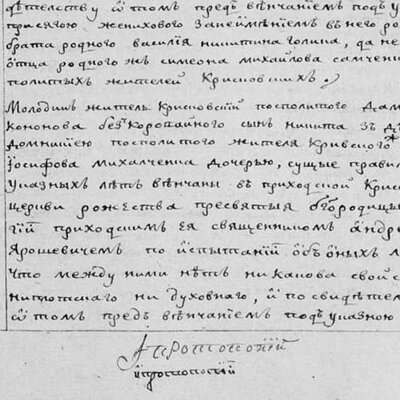 дѣтелству ѡ том предъ вѣнчанїемъ подъ у
присягою женихового занеймѣнїемъ въ него ро
брата родного василїя никитина голика, да не
ѡтца родного жъ симеона михайлова самченк
политыхъ жителей Крисковскихъ.
Молодикъ житель Крисковскїй посполитого Дам
Кононова безкоровайного сынъ никита зъ д
Домникїею посполитого жителя Кривского
Іосифова михалченка дочерью, сущые прави
указныхъ лѣтъ вѣнчаны въ приходской Крис
церкви рожества пресвятыя бгородицы
гїй приходскимъ ея священникомъ андре
Ярошевичемъ по испытанїй обѣоныхъ л
что между ними нѣтъ никакова свойс
ни плотскаго ни духовнаго, и по свидѣтел
ѡ томъ предъ вѣнчанїемъ подъ указною
протопопїй